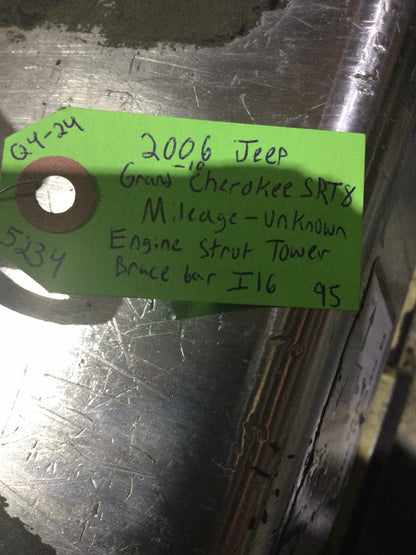 Q4-24
5234
2006 Jeep
-10
Grand Cherokee SRT8
Mileage - Unknown
Engine Strut Tower
Brace bar I16
95